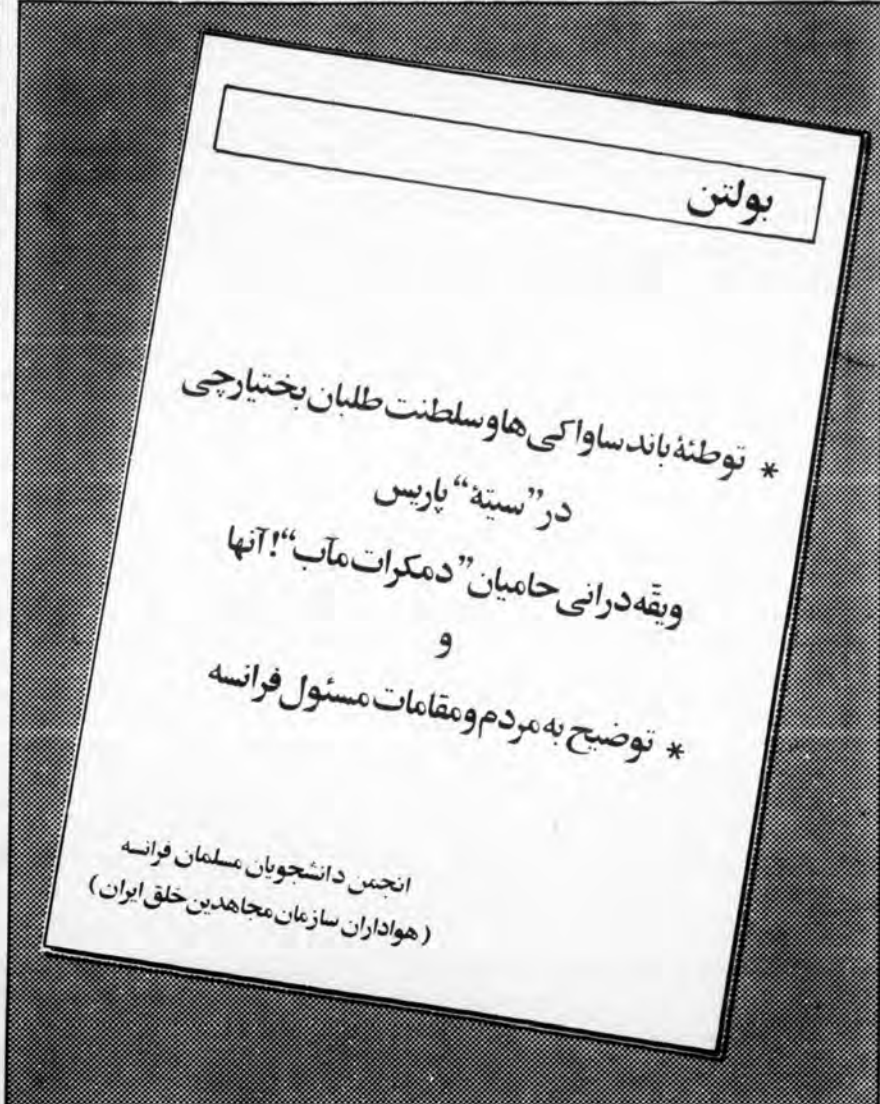 بولتن
* توطئهٔ باند ساواکی‌ها و سلطنت طلبان بختیارچی
در "سیتهٔ" پاریس
و یقّه‌درانی حامیان "دمکرات مآب"! آنها
و
* توضیح به مردم و مقامات مسئول فرانسه
انجمن دانشجویان مسلمان فرانسه
(هواداران سازمان مجاهدین خلق ایران)